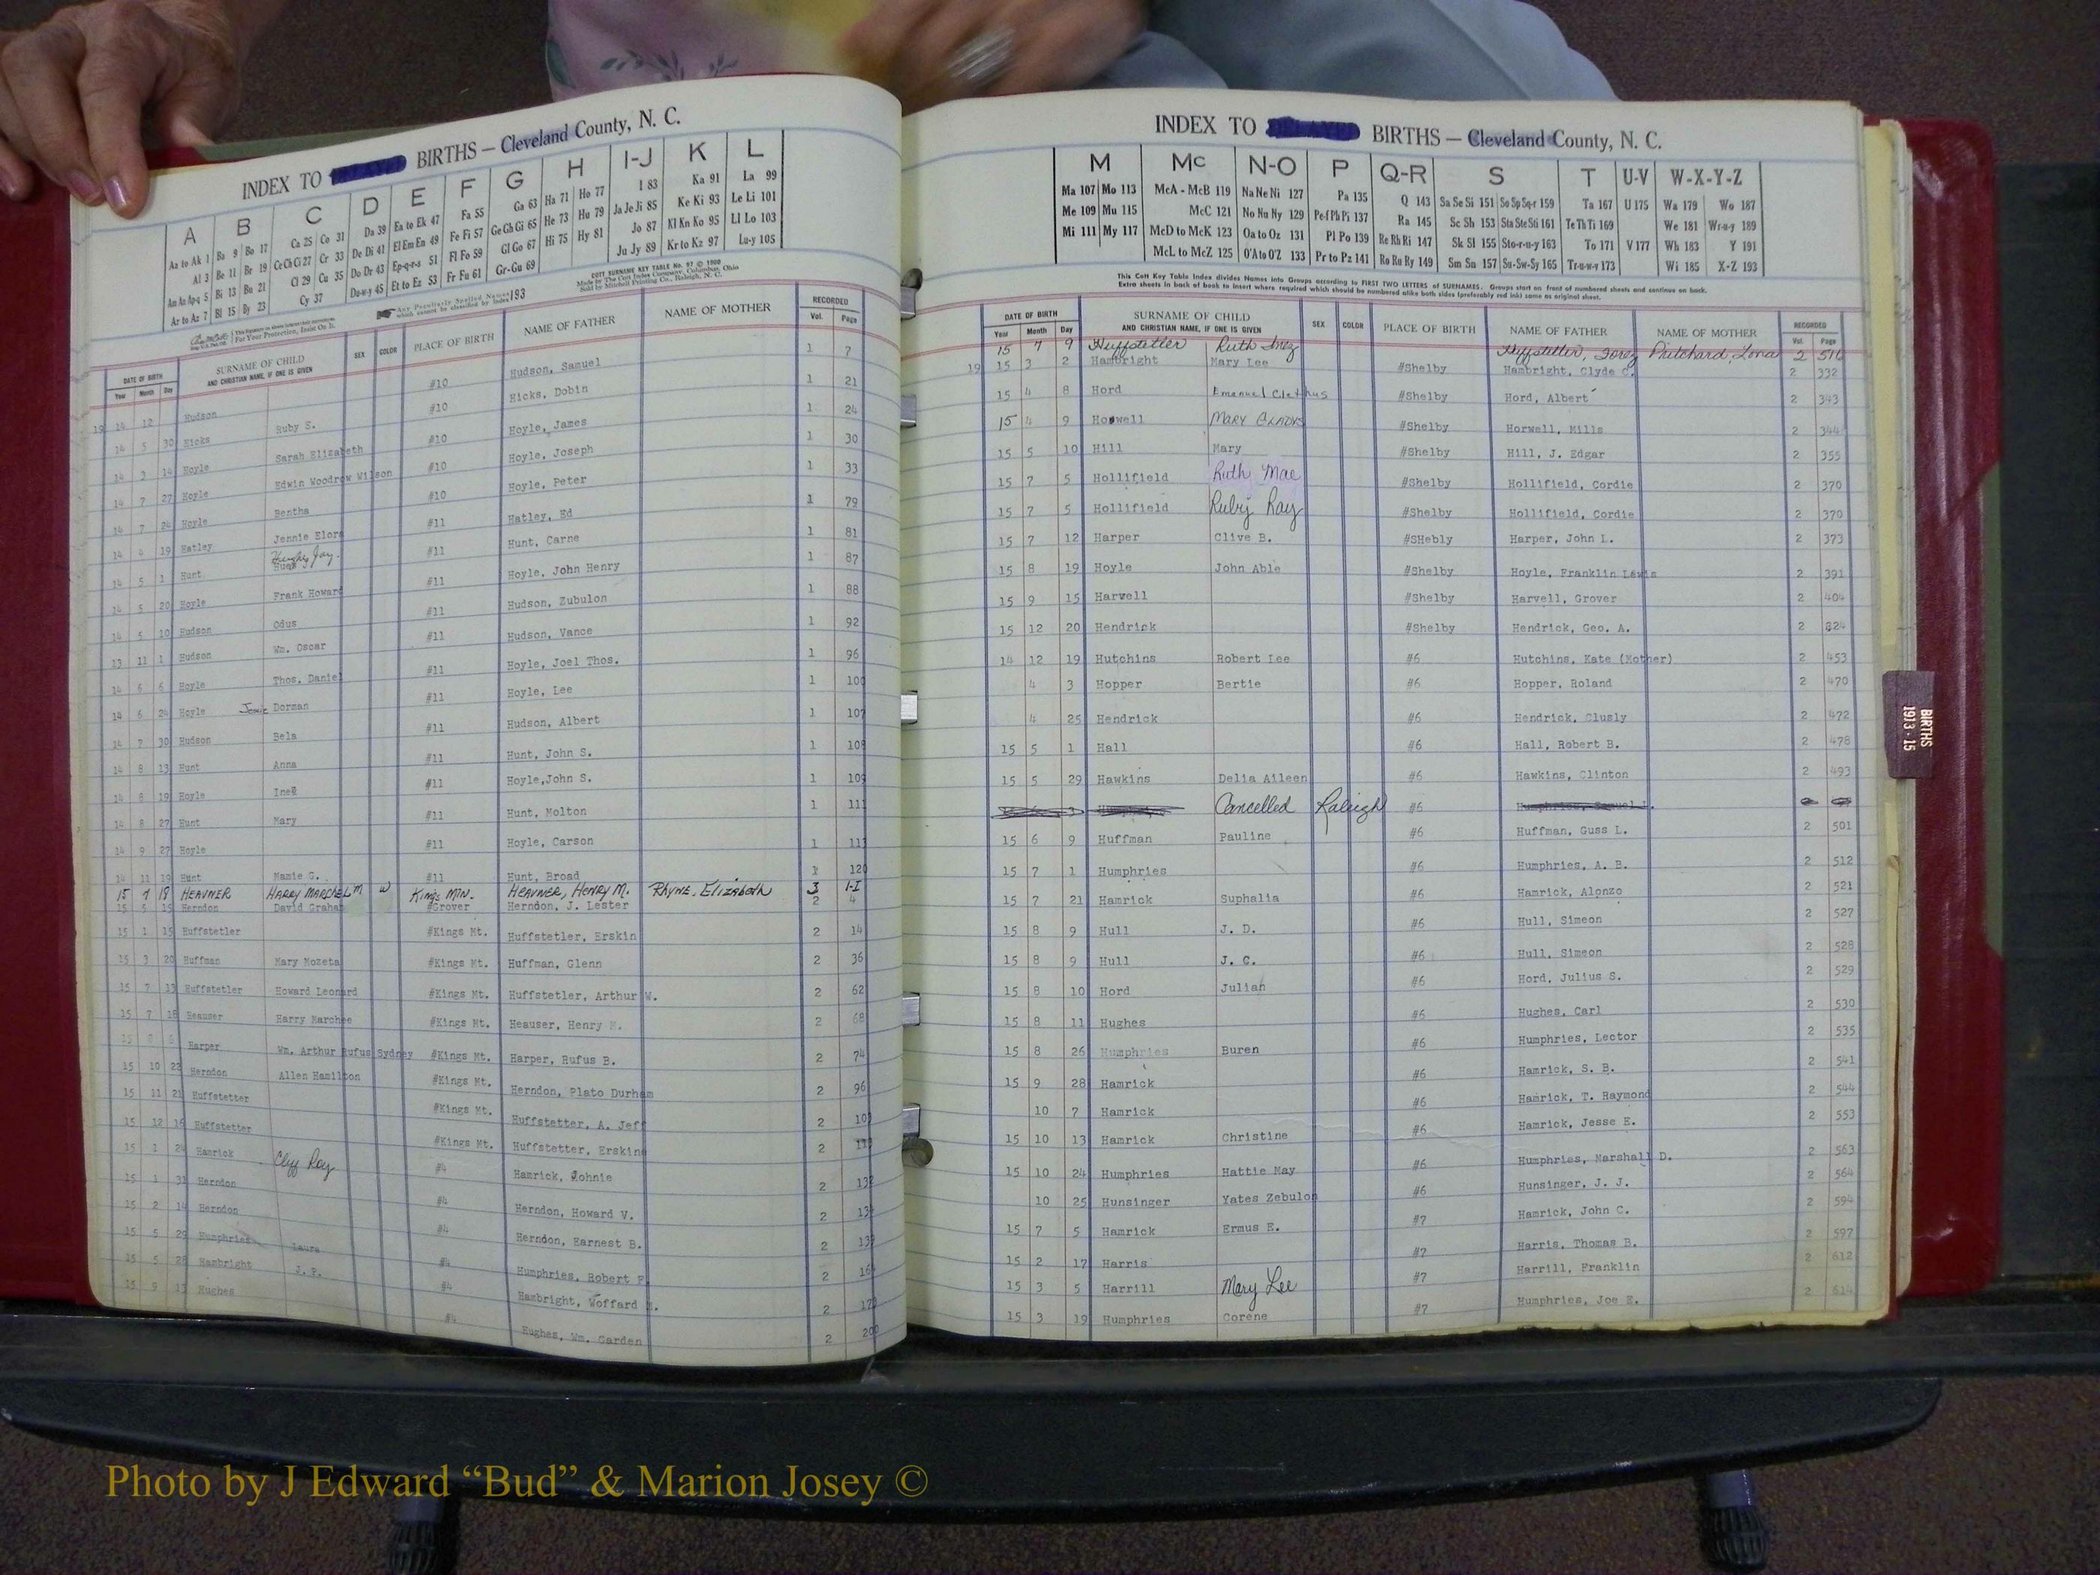 INDEX TO BIRTHS — Cleveland County, N. C.
A B C D E F G H I-J K L
Aa to Ak 1 Ba 9 Bo 17 Ca 25 Co 31 Da 39 Ea to Ek 47 Fa 55 Ga 63 Ha 71 Ho 77 I 83 Ka 91 La 99
Al 3 Be 11 Br 19 Ce Ch Ci 27 Cr 33 De Di 41 El Em En 49 Fe Fi 57 Ge Gh Gi 65 He 73 Hu 79 Ja Je Ji 85 Ke Ki 93 Le Li 101
Am An Ap-q 5 Bi 13 Bu 21 Cl 29 Cu 35 Do Dr 43 Ep-q-r-s 51 Fl Fo 59 Gl Go 67 Hi 75 Hy 81 Jo 87 Kl Kn Ko 95 Ll Lo 103
Ar to Az 7 Bl 15 By 23 Cy 37 Du-w-y 45 Et to Ez 53 Fr Fu 61 Gr-Gu 69 Ju Jy 89 Kr to Kz 97 Lu-y 105
Any Peculiarly Spelled Names which cannot be classified by Index 193
COTT SURNAME KEY TABLE No. 97 © 1900
Made by The Cott Index Company, Columbus, Ohio
Sold by Mitchell Printing Co., Raleigh, N. C.
DATE OF BIRTH SURNAME OF CHILD SEX COLOR PLACE OF BIRTH NAME OF FATHER NAME OF MOTHER RECORDED
Year Month Day AND CHRISTIAN NAME, IF ONE IS GIVEN Vol. Page
19 14 12 Hudson Ruby S. #10 Hudson, Samuel 1 7
14 5 30 Hicks Sarah Elizabeth #10 Hicks, Dobin 1 21
14 3 14 Hoyle Edwin Woodrow Wilson #10 Hoyle, James 1 24
14 7 27 Hoyle Bertha #10 Hoyle, Joseph 1 30
14 7 24 Hoyle Jennie Elora #10 Hoyle, Peter 1 33
14 4 19 Hatley #11 Hatley, Ed 1 79
14 5 1 Hunt #11 Hunt, Carne 1 81
14 5 20 Hoyle Frank Howard #11 Hoyle, John Henry 1 87
14 5 10 Hudson Odus #11 Hudson, Zubulon 1 88
13 11 1 Hudson Wm. Oscar #11 Hudson, Vance 1 92
14 6 6 Hoyle Thos. Daniel #11 Hoyle, Joel Thos. 1 96
14 6 24 Hoyle Dorman #11 Hoyle, Lee 1 100
14 7 30 Hudson Bela #11 Hudson, Albert 1 107
14 8 13 Hunt Anna #11 Hunt, John S. 1 108
14 8 19 Hoyle Inez #11 Hoyle, John S. 1 109
14 8 27 Hunt Mary #11 Hunt, Molton 1 111
14 9 27 Hoyle #11 Hoyle, Carson 1 113
14 11 19 Hunt Mamie G. #11 Hunt, Broad 1 120
15 7 18 HEAVNER HARRY MARCHEL M W KINGS MTN. HEAVNER, HENRY M. RHYNE, ELIZABETH 3 1-I
15 5 15 Herndon David Graham #Grover Herndon, J. Lester 2 4
15 1 15 Huffstetler #Kings Mt. Huffstetler, Erskin 2 14
15 3 20 Huffman Mary Mozeta #Kings Mt. Huffman, Glenn 2 36
15 7 13 Huffstetler Howard Leonard #Kings Mt. Huffstetler, Arthur W. 2 62
15 7 18 Heauser Harry Marchee #Kings Mt. Heauser, Henry M. 2 68
15 8 Harper Wm. Arthur Rufus Sydney #Kings Mt. Harper, Rufus B. 2 74
15 10 22 Herndon Allen Hamilton #Kings Mt. Herndon, Plato Durham 2 96
15 11 21 Huffstetter #Kings Mt. Huffstetter, A. Jeff 2
15 12 16 Huffstetter #Kings Mt. Huffstetter, Erskine 2
15 1 24 Hamrick Cliff Ray #4 Hamrick, Johnie 2 132
15 1 31 Herndon #4 Herndon, Howard V. 2
15 2 14 Herndon #4 Herndon, Earnest B. 2 139
15 5 29 Humphries Laura #4 Humphries, Robert F. 2
15 5 28 Hambright J. P. #4 Hambright, Woffard 2
15 9 13 Hughes #4 Hughes, Wm. Carden 2 200
INDEX TO BIRTHS — Cleveland County, N. C.
M Mc N-O P Q-R S T U-V W-X-Y-Z
Ma 107 Mo 113 McA - McB 119 Na Ne Ni 127 Pa 135 Q 143 Sa Se Si 151 So Sp Sq-r 159 Ta 167 U 175 Wa 179 Wo 187
Me 109 Mu 115 McC 121 No Nu Ny 129 Pe-f Ph Pi 137 Ra 145 Sc Sh 153 Sta Ste Sti 161 Te Th Ti 169 We 181 Wr-u-y 189
Mi 111 My 117 McD to McK 123 Oa to Oz 131 Pl Po 139 Re Rh Ri 147 Sk Sl 155 Sto-r-u-y 163 To 171 V 177 Wh 183 Y 191
McL to McZ 125 O'A to O'Z 133 Pr to Pz 141 Ro Ru Ry 149 Sm Sn 157 Su-Sw-Sy 165 Tr-u-w-y 173 Wi 185 X-Z 193
This Cott Key Table Index divides Names into Groups according to FIRST TWO LETTERS of SURNAMES. Groups start on front of numbered sheets and continue on back.
Extra sheets in back of book to insert where required which should be numbered alike both sides (preferably red ink) same as original sheet.
DATE OF BIRTH SURNAME OF CHILD SEX COLOR PLACE OF BIRTH NAME OF FATHER NAME OF MOTHER RECORDED
Year Month Day AND CHRISTIAN NAME, IF ONE IS GIVEN Vol. Page
15 7 9 Huffstetler Ruth Inez Huffstetler, Pritchard, Lona 2 516
19 15 3 2 Hambright Mary Lee #Shelby Hambright, Clyde C. 2 332
15 4 8 Hord Emanuel Clethus #Shelby Hord, Albert 2 343
15 4 9 Horwell MARY GLADYS #Shelby Horwell, Mills 2 344
15 5 10 Hill Mary #Shelby Hill, J. Edgar 2 355
15 7 5 Hollifield Ruth Mae #Shelby Hollifield, Cordie 2 370
15 7 5 Hollifield Ruby Ray #Shelby Hollifield, Cordie 2 370
15 7 12 Harper Clive B. #SHebly Harper, John L. 2 373
15 8 19 Hoyle John Able #Shelby Hoyle, Franklin Lewis 2 391
15 9 15 Harwell #Shelby Harvell, Grover 2 404
15 12 20 Hendrick #Shelby Hendrick, Geo. A. 2 824
14 12 19 Hutchins Robert Lee #6 Hutchins, Kate (Mother) 2 453
4 3 Hopper Bertie #6 Hopper, Roland 2 470
4 25 Hendrick #6 Hendrick, Clusly 2 472
15 5 1 Hall #6 Hall, Robert B. 2 478
15 5 29 Hawkins Delia Aileen #6 Hawkins, Clinton 2 493
Cancelled Raleigh #6
15 6 9 Huffman Pauline #6 Huffman, Guss L. 2 501
15 7 1 Humphries #6 Humphries, A. B. 2 512
15 7 21 Hamrick Suphalia #6 Hamrick, Alonzo 2 521
15 8 9 Hull J. D. #6 Hull, Simeon 2 527
15 8 9 Hull J. C. #6 Hull, Simeon 2 528
15 8 10 Hord Julian #6 Hord, Julius S. 2 529
15 8 11 Hughes #6 Hughes, Carl 2 530
15 8 26 Humphries Buren #6 Humphries, Lector 2 535
15 9 28 Hamrick #6 Hamrick, S. B. 2 541
10 7 Hamrick #6 Hamrick, T. Raymond 2 544
15 10 13 Hamrick Christine #6 Hamrick, Jesse E. 2 553
15 10 24 Humphries Hattie May #6 Humphries, Marshall D. 2 563
10 25 Hunsinger Yates Zebulon #6 Hunsinger, J. J. 2 564
15 7 5 Hamrick Ermus E. #7 Hamrick, John C. 2 594
15 2 17 Harris #7 Harris, Thomas B. 2 597
15 3 5 Harrill Mary Lee #7 Harrill, Franklin 2 612
15 3 19 Humphries Corene #7 Humphries, Joe E. 2 614
BIRTHS
1913 - 15
Photo by J Edward “Bud” & Marion Josey ©